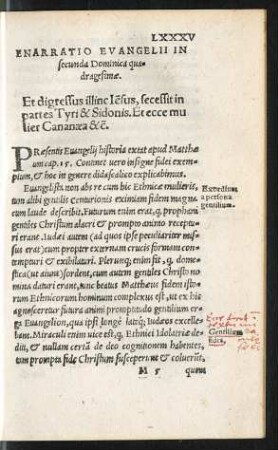 LXXXV
ENARRATIO EVANGELII IN
secunda Dominica qua
dragesimæ.
Et digressus illinc Iesus, secessit in
partes Tyri & Sidonis. Et ecce mu
lier Cananæa &c.
PRæsentis Euangelij historia extat apud Matthæ
um cap. 15. Continet uero insigne fidei exem
plum, & hoc in genere didascalico explicabimus.
Euangelista non abs re cum hic Ethnicæ mulieris,
tum alibi gentilis Centurionis eximiam fidem magna
cum laude describit. Futurum enim erat, q. prophani
gentiles Christum alacri & prompto animo receptu
ri erant. Iudæi autem (ad quos ipse peculiariter mis
sus erat) propter externam crucis formam contem
pturi & exhibilaturi. Plerunq; enim fit, q. dome
stica (ut aiunt) sordent, cum autem gentiles Christo no
mina daturi erant, nunc beatus Matthæus fidem ist
orum Ethnicorum hominum complexus est, ut ex his
agnosceretur futura animi promptitudo gentilium er
ga Euangelion, qua ipsi longe latéq; Iudæos excelle
bant. Miraculi enim uice est, q. Ethnici Idolatriæ de
diti, & nullam certā de deo cognitionem habentes,
tam prompta fide Christum susceperunt & coluerūt,
M 5 quem
Exordium
a persona
gentilium.
Gentilium
fides.